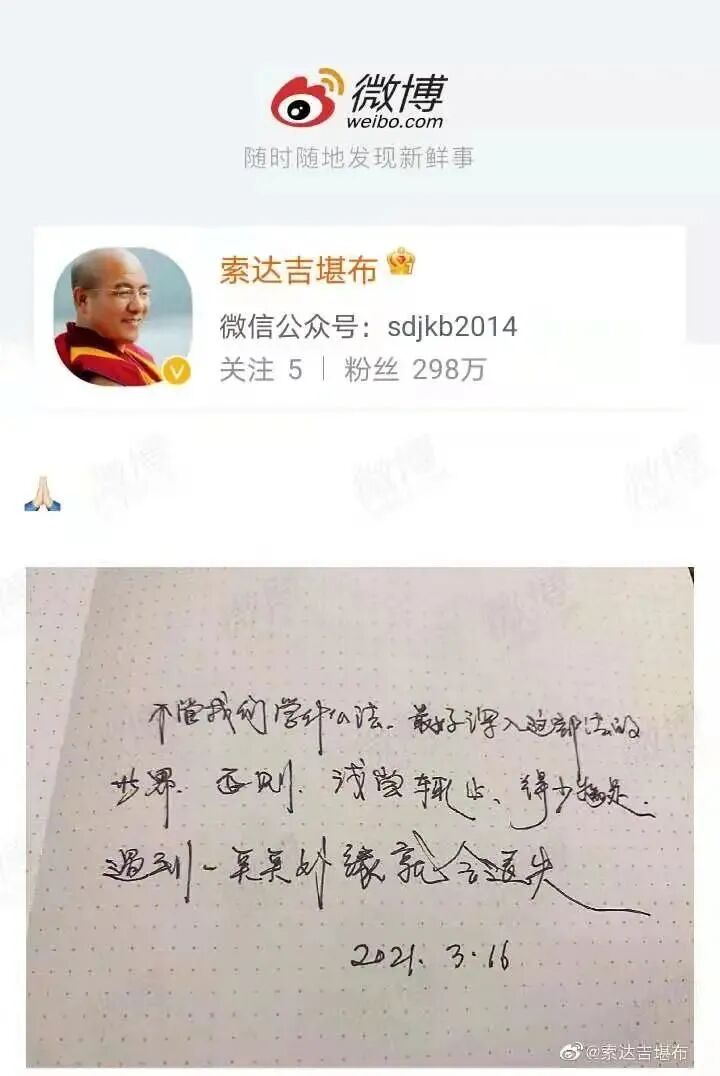 微博
weibo.com
随时随地发现新鲜事
索达吉堪布
微信公众号：sdjkb2014
关注 5 | 粉丝 298万
不管我们学什么法、最好深入这部法的
世界. 否则、浅尝辄止、得少为足.
遇到一点点外缘就会退失
2021.3.16
@索达吉堪布